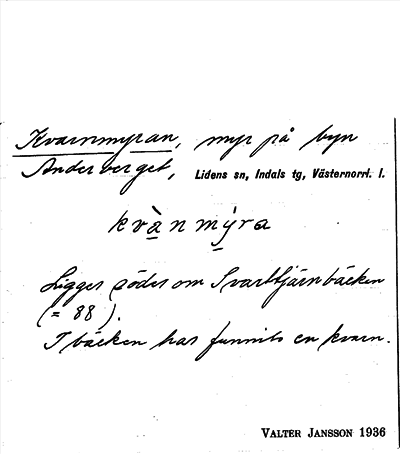 Kvarnmyran, myr på byn
Anderberget, Lidens sn, Indals tg, Västernorrl. l.
kvànmỳra
Ligger söder om Svarttjärnbäcken
(= 88).
I bäcken har funnits en kvarn.
VALTER JANSSON 1936